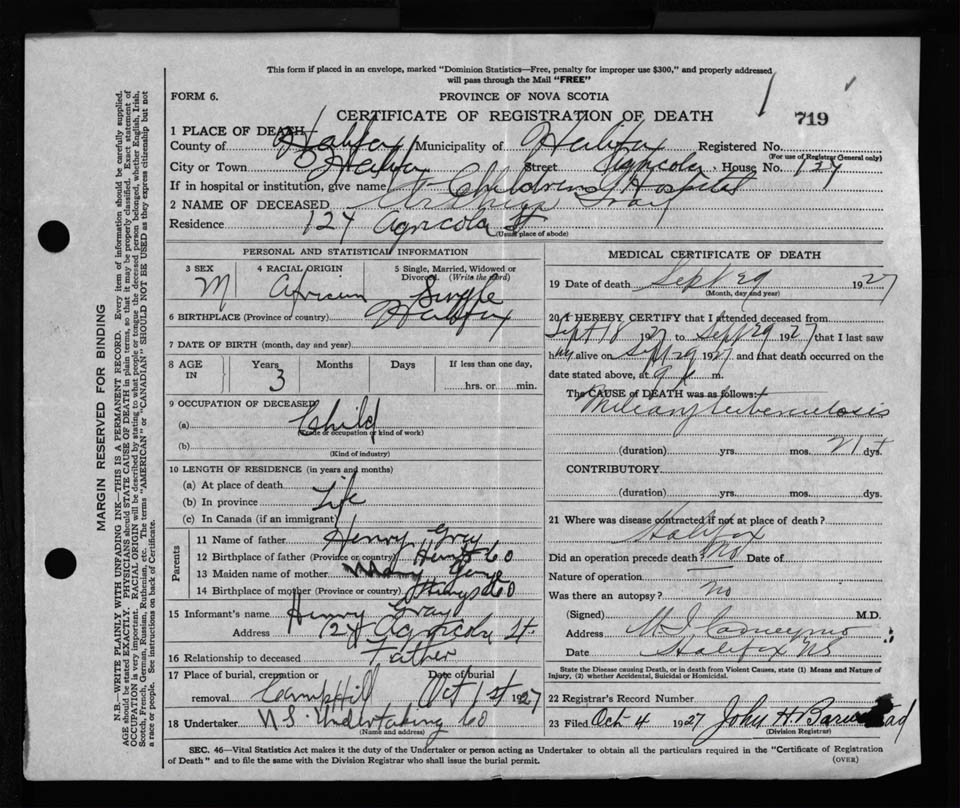 This form if placed in an envelope, marked "Dominion Statistics—Free, penalty for improper use $300," and properly addressed
will pass through the Mail "FREE"
FORM 6. PROVINCE OF NOVA SCOTIA
CERTIFICATE OF REGISTRATION OF DEATH 719
1 PLACE OF DEATH
County of Halifax Municipality of Halifax Registered No.
(For use of Registrar General only)
City or Town Halifax Street Agricola House No. 124
If in hospital or institution, give name Childrens Hospital
2 NAME OF DECEASED Gray
Residence 124 Agricola St
(Usual place of abode)
PERSONAL AND STATISTICAL INFORMATION
3 SEX 4 RACIAL ORIGIN 5 Single, Married, Widowed or Divorced. (Write the word)
M African Single
6 BIRTHPLACE (Province or country) Halifax
7 DATE OF BIRTH (month, day and year)
8 AGE IN Years Months Days If less than one day,
3 hrs. or min.
9 OCCUPATION OF DECEASED
(a) Child
(Trade or occupation or kind of work)
(b)
(Kind of industry)
10 LENGTH OF RESIDENCE (in years and months)
(a) At place of death
(b) In province Life
(c) In Canada (if an immigrant)
Parents
11 Name of father Henry Gray
12 Birthplace of father (Province or country) Hants Co
13 Maiden name of mother Mary
14 Birthplace of mother (Province or country) Co
15 Informant's name Henry Gray
Address 124 Agricola St.
16 Relationship to deceased Father
17 Place of burial, cremation or removal Camp Hill Date of burial Oct 1st 1927
18 Undertaker N.S. Undertaking Co
(Name and address)
MEDICAL CERTIFICATE OF DEATH
19 Date of death Sept 29 1927
(Month, day and year)
20 I HEREBY CERTIFY that I attended deceased from
Sept 18 1927 to Sept 29 1927 that I last saw
him alive on Sept 29 1927 and that death occurred on the
date stated above, at 9 m.
The CAUSE of DEATH was as follows:
Miliary tuberculosis
(duration) yrs. mos. 21 dys.
CONTRIBUTORY
(duration) yrs. mos. dys.
21 Where was disease contracted if not at place of death?
Halifax
Did an operation precede death No Date of
Nature of operation
Was there an autopsy? No
(Signed) M.D.
Address
Date Halifax NS
State the Disease causing Death, or in death from Violent Causes, state (1) Means and Nature of
Injury, (2) whether Accidental, Suicidal or Homicidal.
22 Registrar's Record Number
23 Filed Oct 4 1927 John H
(Division Registrar)
SEC. 46—Vital Statistics Act makes it the duty of the Undertaker or person acting as Undertaker to obtain all the particulars required in the "Certificate of Registration
of Death" and to file the same with the Division Registrar who shall issue the burial permit. (OVER)
MARGIN RESERVED FOR BINDING
N.B.—WRITE PLAINLY WITH UNFADING INK—THIS IS A PERMANENT RECORD. Every item of information should be carefully supplied.
AGE should be stated EXACTLY. PHYSICIANS should STATE CAUSE OF DEATH in plain terms, so that it may be properly classified. Exact statement of
OCCUPATION is very important. RACIAL ORIGIN will be described by stating to what people or tongue the deceased person belonged, whether English, Irish,
Scotch, French, German, Russian, Ruthenian, etc. The terms "AMERICAN" or "CANADIAN" SHOULD NOT BE USED as they express citizenship but not
a race or people. See instructions on back of Certificate.